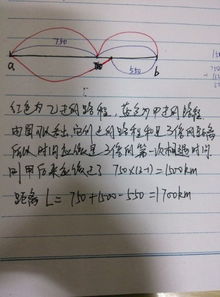 750
a
b
550
红色为乙走的路程，蓝色为甲走的路程
由图可以看出，他们走的路程和是3倍的距离
所以时间应该是3倍的第一次相遇时间
则甲后来应该走了 750×(3-1)=1500km
距离 L = 750+1500-550 = 1700km